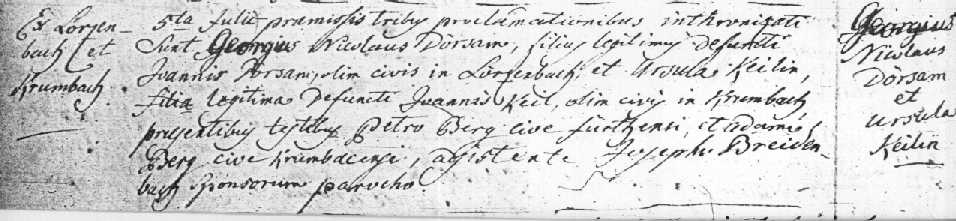 Ex Lörzen-
bach et
Krumbach
5ta Julii praemissis tribus proclamationibus inthronizati
sunt Georgius Nicolaus Dörsam, filius legitimus defuncti
Joannis Dörsam, olim civis in Lörzenbach, et Ursula Keilin,
filia legitima defuncti Joannis Keil, olim civis in Krumbach
praesentibus testibus Petro Berg cive fürthensi, et adamo
Berg cive Krumbacensi, assistente Josepho Breiden-
bach sponsorum parocho
Georgius
Nicolaus
Dörsam
et
Ursula
Keilin